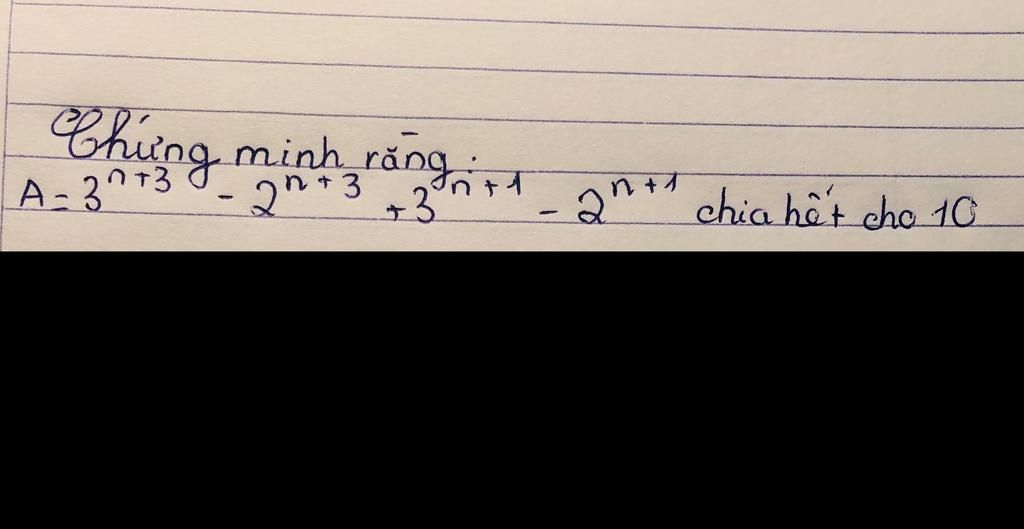 Chứng minh rằng:
A = 3^{n+3} - 2^{n+3} + 3^{n+1} - 2^{n+1} chia hết cho 10